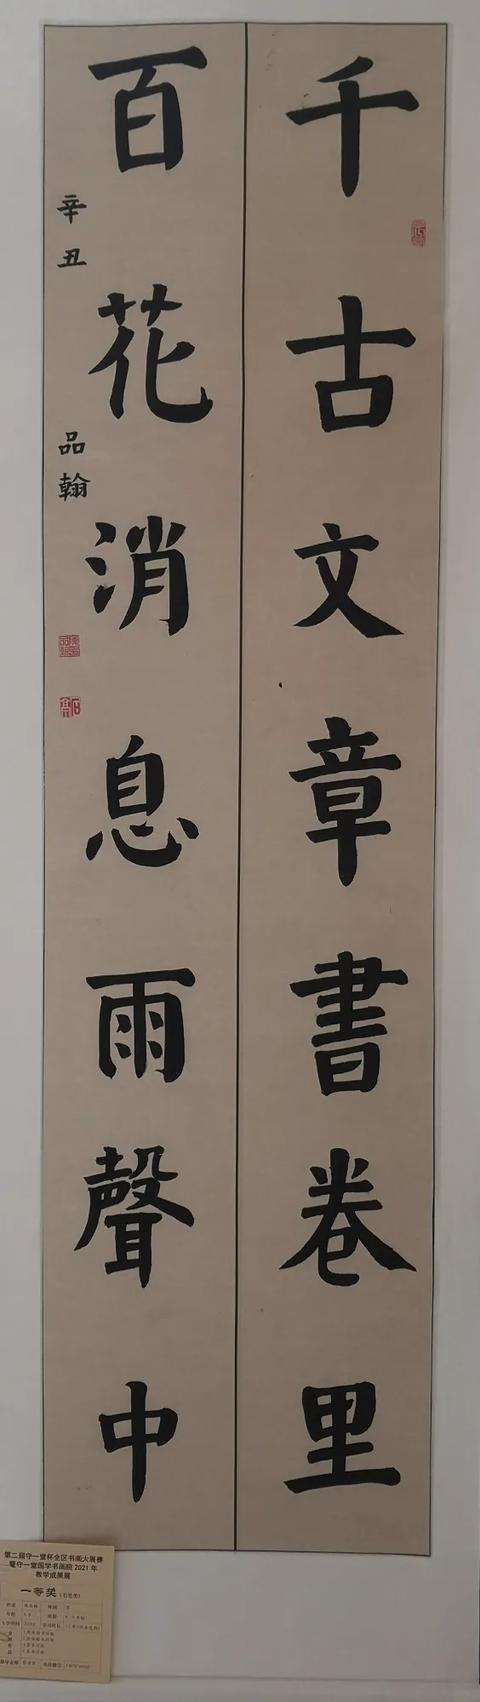 千古文章書卷里
百花消息雨聲中
辛丑
品翰
第二届守一堂杯全区书画大展赛
暨守一堂国学书画院2021年
教学成果展
一等奖